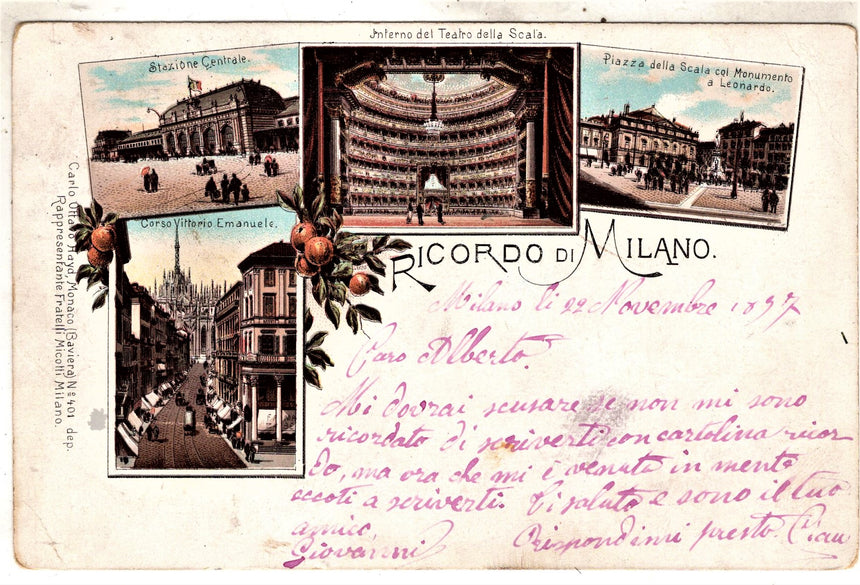 Interno del Teatro della Scala.
Stazione Centrale.
Piazza della Scala col Monumento
a Leonardo.
Corso Vittorio Emanuele.
RICORDO DI MILANO.
Carlo Ottavo Hayd, Monaco (Baviera) No 401 dep.
Rappresentante Fratelli Micotti Milano.
Milano li 22 Novembre 1897
Caro Alberto.
Mi dovrai scusare se non mi sono
ricordato di scriverti con cartolina ricor
do, ma ora che mi è venuto in mente
eccoti a scriverti. Ti saluto e sono il tuo
amico,
Giovanni
Rispondimi presto. Ciau